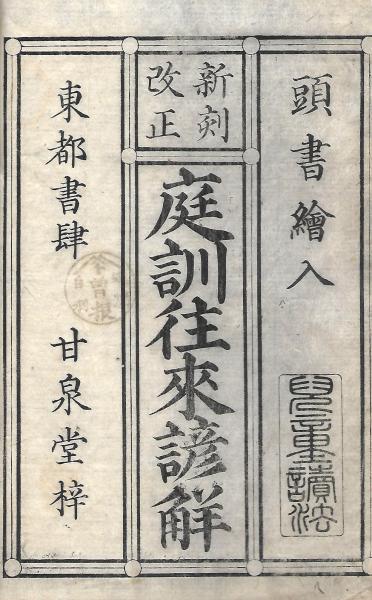 頭書繪入
兒童讀法
新刻
改正
庭訓往來諺解
東都書肆 甘泉堂梓